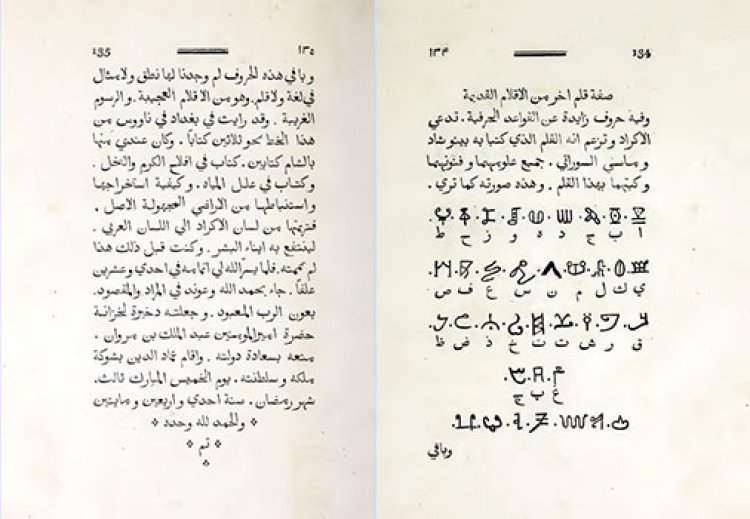 ١٣٤ 134
صفة قلم اخر من الاقلام القديمة
وفيه حروف زايدة عن القواعد الحرفية . تدعي
الاكراد وتزعم انه القلم الذي كتبا به بينوشاد
و ماسي السوراتي . جميع علومهما و فنونهما
وكتبهما بهذا القلم . وهذه صورته كما تري .
ا ب ج د ه و ز ح ط
ي ك ل م ن س ع ف ص
ق ر ش ت ث خ ذ ض ظ
وباقي
135 ١٣٥
وباقي هذه الحروف لم وجدنا لها نطق ولا مثال
في لغة ولا قلم . وهو من الاقلام العجيبة . والرسوم
الغريبة . وقد رايت في بغداد في ناووس من
هذا الخط نحو ثلاثين كتابا . وكان عندي منها
بالشام كتابين . كتاب في افلاح الكرم والنخل .
وكتاب في علل المياه . وكيفية استخراجها
واستنباطها من الاراضي المجهولة الاصل .
فترجمتها من لسان الاكراد الي اللسان العربي .
لينتفع به ابناء البشر . وكنت قبل ذلك هذا
لم تممته . فلما يسر الله لي اتمامه في احدي وعشرين
عاما . جاء بحمد الله وعونه في المراد والمقصود .
بعون الرب المعبود . وجعلته ذخيرة لخزانة
حضرة امير المومنين عبد الملك بن مروان .
متعه بسعادة دولته . واقام عماد الدين بشوكة
ملكه وسلطنته . يوم الخميس المبارك ثالث .
شهر رمضان . سنة احدي واربعين ومايتين
والحمد لله وحده
تم